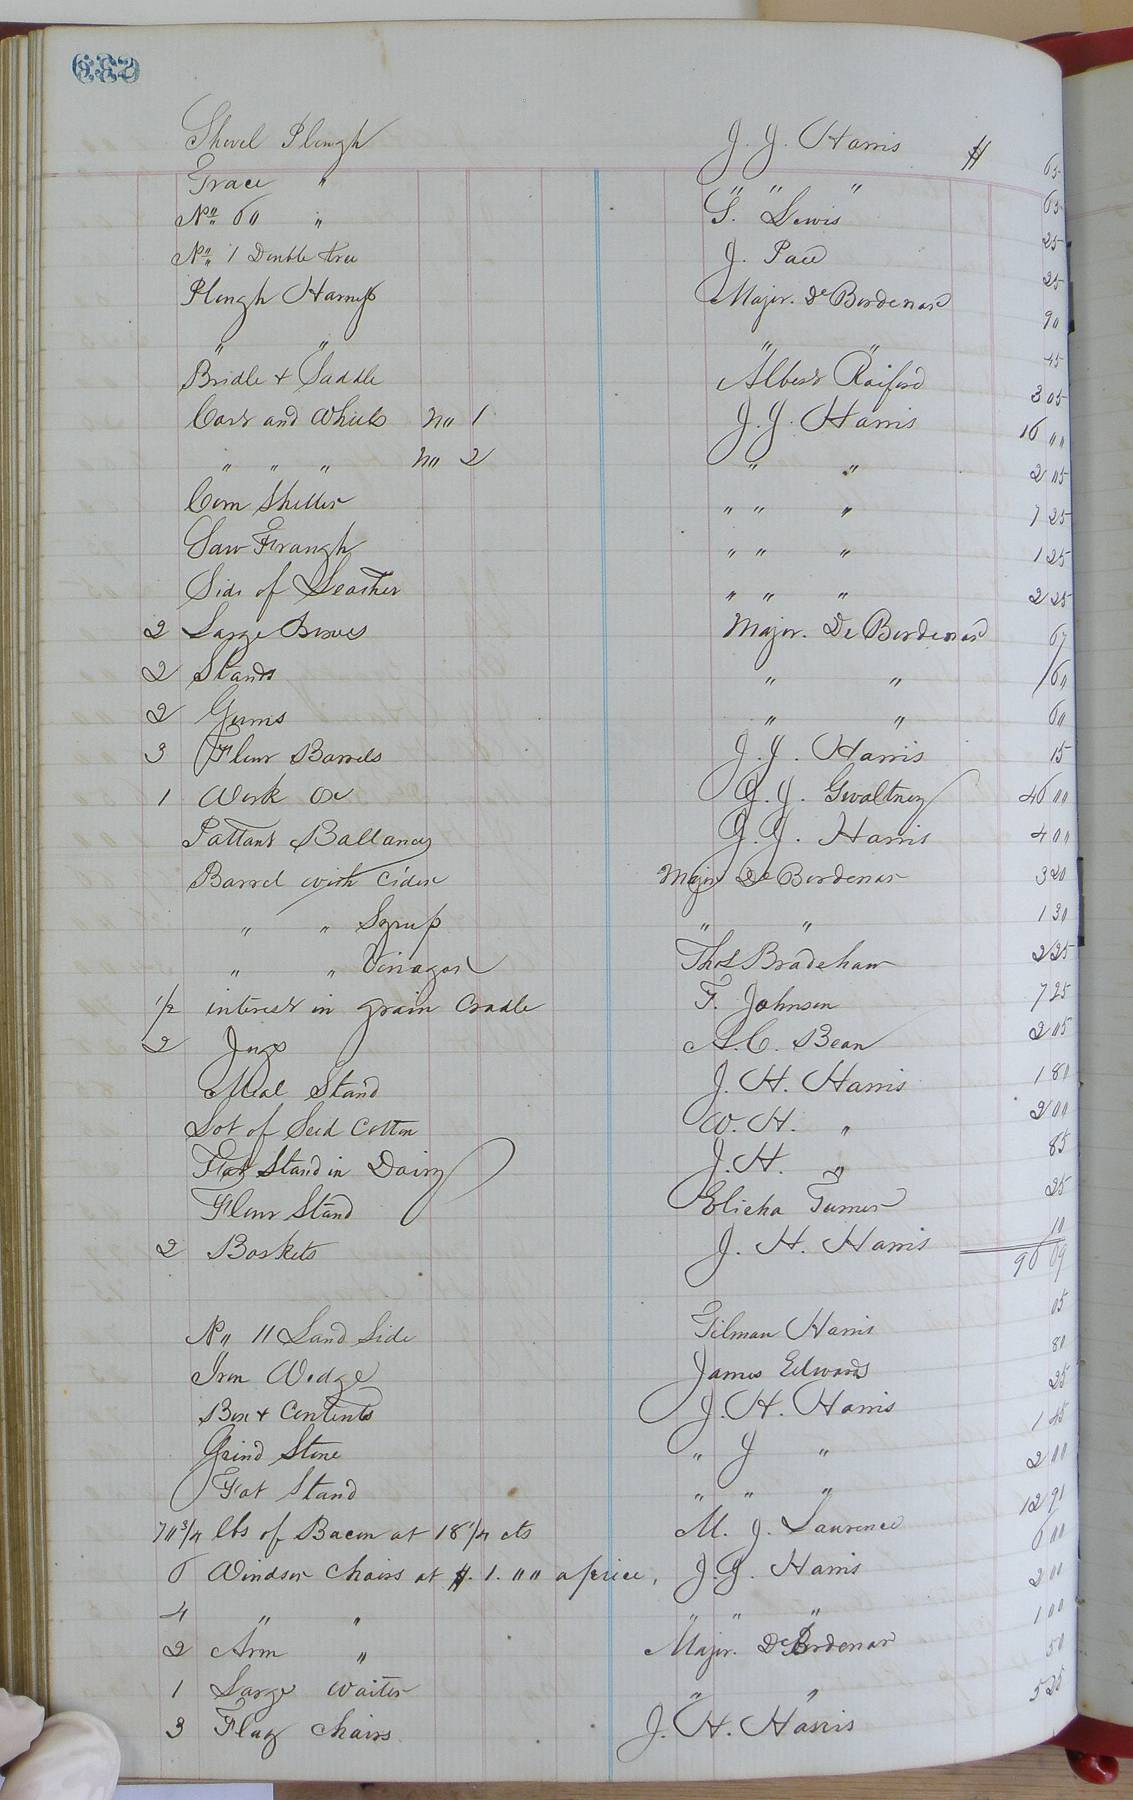 Shovel Plough J. J. Harris $ 65
Trace " " " " 65
No 60 " S. Lewis 25
No 1 Double tree J. Pace 25
Plough Harness Major. De Bordenave 90
" " " " 45
Bridle & Saddle Albert Raiford 3 05
Cart and Wheels No 1 J. J. Harris 16 00
" " " No 2 " " 2 05
Corn Sheller " " " 7 25
Saw Trough " " " 1 25
Side of Leather " " " 2 25
2 Large Boxes Major. De Bordenave 67
2 Stands " " 60
2 Gums " " 60
3 Flour Barrels J. J. Harris 15
1 Work Ox J. J. Gwaltney 46 00
Pattant Ballances J. J. Harris 4 00
Barrel with Cider Major De Bordenave 3 20
" " Syrup " " 1 30
" " Vinagar Thos Bradshaw 2 25
1/2 interest in grain Cradle F. Johnson 7 25
2 Jugs A. C. Bean 2 05
Meal Stand J. H. Harris 1 80
Lot of Seed Cotton W. H. " 2 00
Flat Stand in Dairy J. H. " 85
Flour Stand Elisha Turner 25
2 Baskets J. H. Harris 10
96 69
No 11 Land Side Tilman Harris 05
Iron Wedge James Edwards 80
Box & Contents J. H. Harris 25
Grind Stone " J " 1 45
Fat Stand " " " 2 00
70 3/4 lbs of Bacon at 18 1/4 cts M. J. Laurence 12 91
6 Windsor Chairs at $. 1. 00 apeice, J. J. Harris 6 00
4 " " " " " 2 00
2 Arm " Major. De Bordenave 1 00
1 Large Waiter " " 50
3 Flag Chairs J. H. Harris 5 25